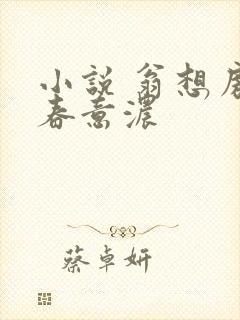 小説 翁想房
春意濃
蔡卓妍